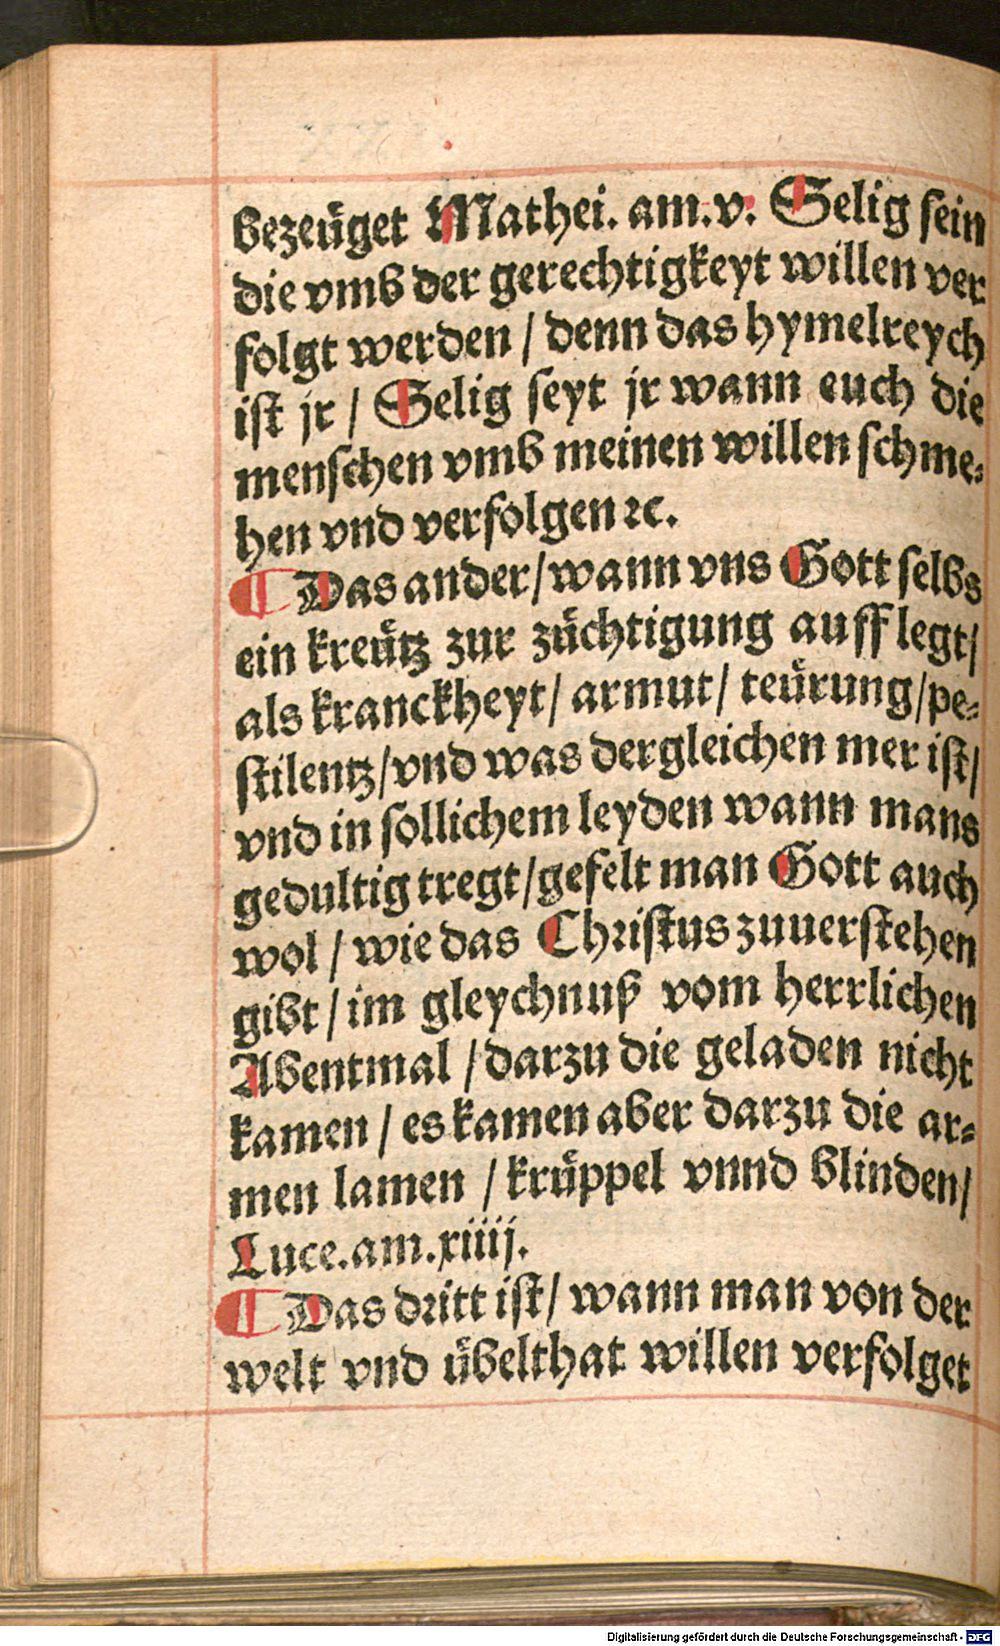 bezeüget Mathei. am.v. Selig sein
die vmb der gerechtigkeyt willen ver
folgt werden / denn das hymelreych
ist jr / Selig seyt jr wann euch die
menschen vmb meinen willen schme⸗
hen vnd verfolgen ⁊c.
¶ Das ander/wann vns Gott selbs
ein kreütz zur züchtigung auff legt/
als kranckheyt/ armut/ teürung/pe⸗
stilentz/vnd was dergleichen mer ist/
vnd in sollichem leyden wann mans
gedultig tregt/gefelt man Gott auch
wol / wie das Christus zuuerstehen
gibt / im gleychnuß vom herrlichen
Abentmal / darzu die geladen nicht
kamen / es kamen aber darzu die ar⸗
men lamen / krüppel vnnd blinden/
Luce.am.xiiij.
¶ Das dritt ist/ wann man von der
welt vnd übelthat willen verfolget
Digitalisierung gefördert durch die Deutsche Forschungsgemeinschaft - DFG